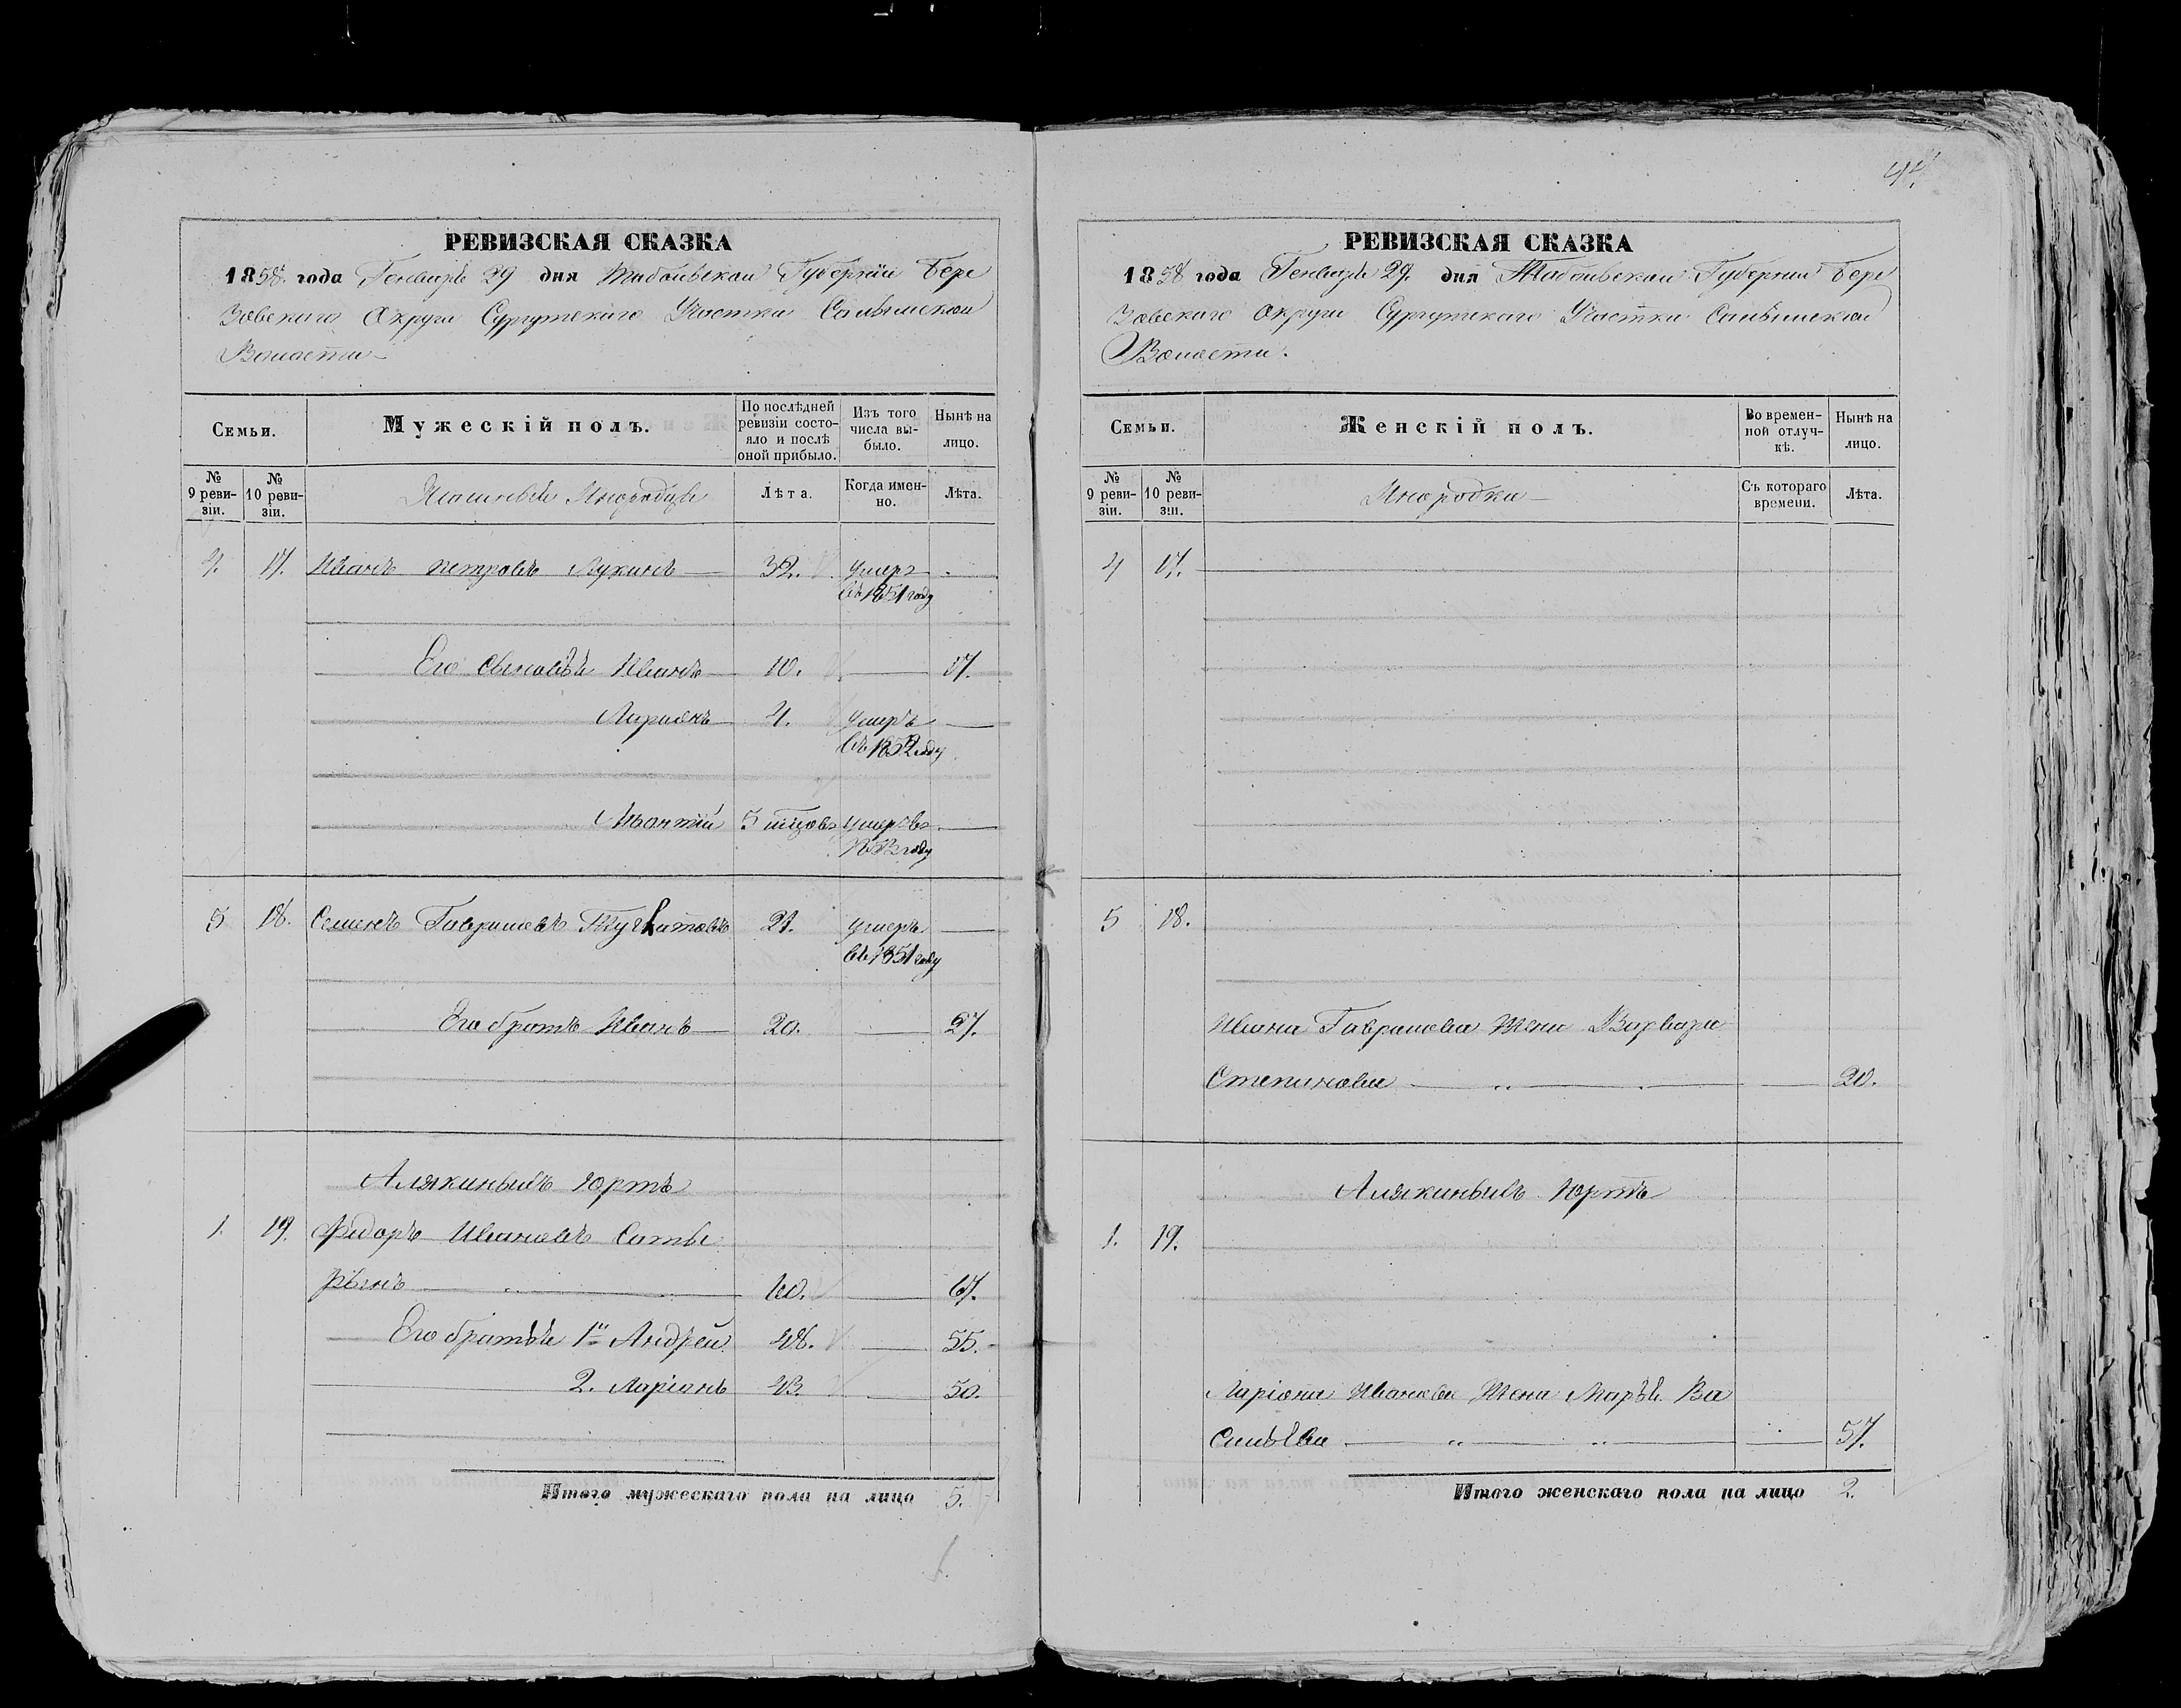 РЕВИЗСКАЯ СКАЗКА
1858 года Генваря 29 дня Тобольской Губерніи Бере
зовскаго Округа Сургутскаго Участка Салымской
Волости
Семьи.
Мужескій полъ.
По послѣдней ревизіи состояло и послѣ оной прибыло.
Изъ того числа выбыло.
Нынѣ на лицо.
№ 9 ревизіи.
№ 10 ревизіи.
Ясашные Инородцы
Лѣта.
Когда именно.
Лѣта.
4. 17. Иванъ Петровъ Лукинъ 32. умеръ
въ 1851 году
Его сыновья Иванъ 10. 17.
Ларионъ 4. умеръ
въ 1852 году
5 умеръ
году
5 18. Семенъ Гавриловъ 21. умеръ
въ 1851 году
Его братъ Иванъ 20. 27.
Алякиныхъ Юртъ
1. 19. Федоръ Ивановъ Саты
60. 67.
Его братья 1й Андрей 48. 55.
2. Ларіонъ 43. 50.
Итого мужескаго пола на лицо 5.
44.
РЕВИЗСКАЯ СКАЗКА
1858 года Генваря 29. дня Тобольской Губерніи Бере
зовскаго Округа Сургутскаго Участка Салымской
Волости.
Семьи.
Женскій полъ.
Во временной отлучкѣ.
Нынѣ на лицо.
№ 9 ревизіи.
№ 10 ревизіи.
Инородки
Съ котораго времени.
Лѣта.
4 17.
5 18.
Ивана Гаврилова Жена Варвара
Степанова 20.
Алякиныхъ Юртъ
1. 19.
Ларіона Иванова Жена Марья Ва
сильева 57.
Итого женскаго пола на лицо 2.